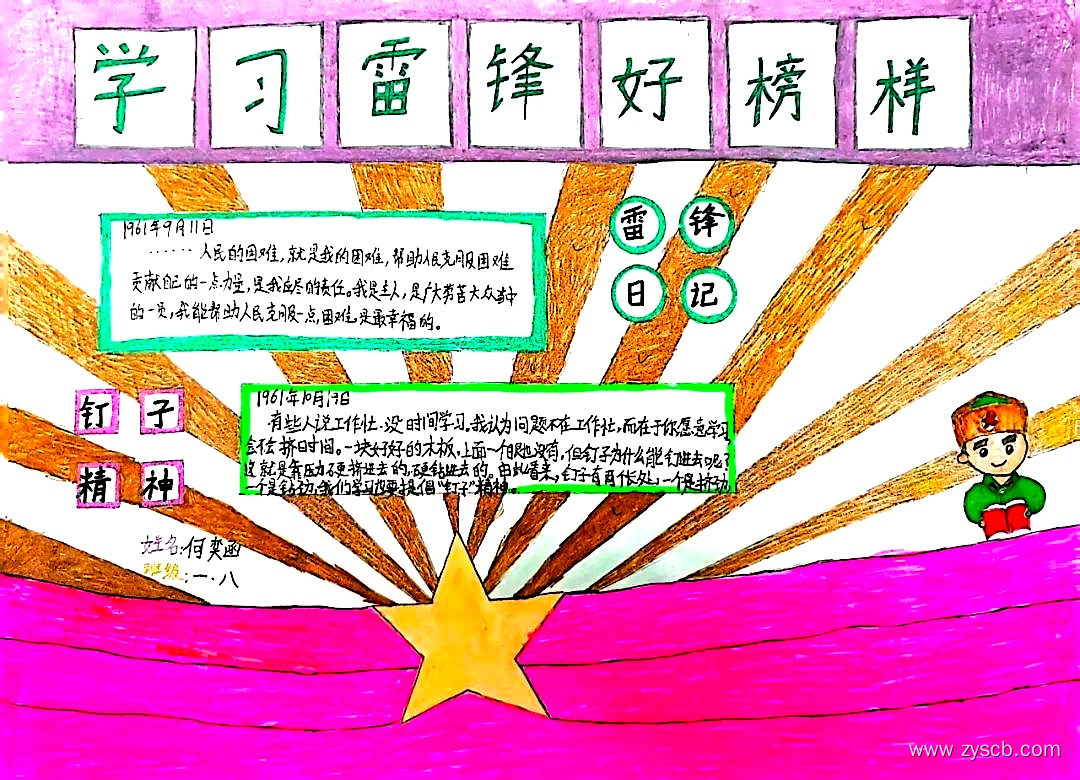 学习雷锋好榜样
1961年9月11日
······人民的困难,就是我的困难,帮助人民克服困难
贡献自己的一点力量,是我应尽的责任。我是主人,是广大劳苦大众当中
的一员,我能帮助人民克服一点困难,是最幸福的。
雷锋
日记
1961年10月19日
有些人说工作忙.没时间学习.我认为问题不在工作忙,而在于你愿意学习
会不会挤时间。一块好好的木板,上面一个眼也没有,但钉子为什么能钉进去呢?
这就是靠压力硬挤进去的,硬钻进去的。由此看来,钉子有两个长处:一个是挤劲,
一个是钻劲,我们学习也要提倡“钉子”精神。
钉子
精神
姓名:何奕函
班级:一.八
www.zyscb.com